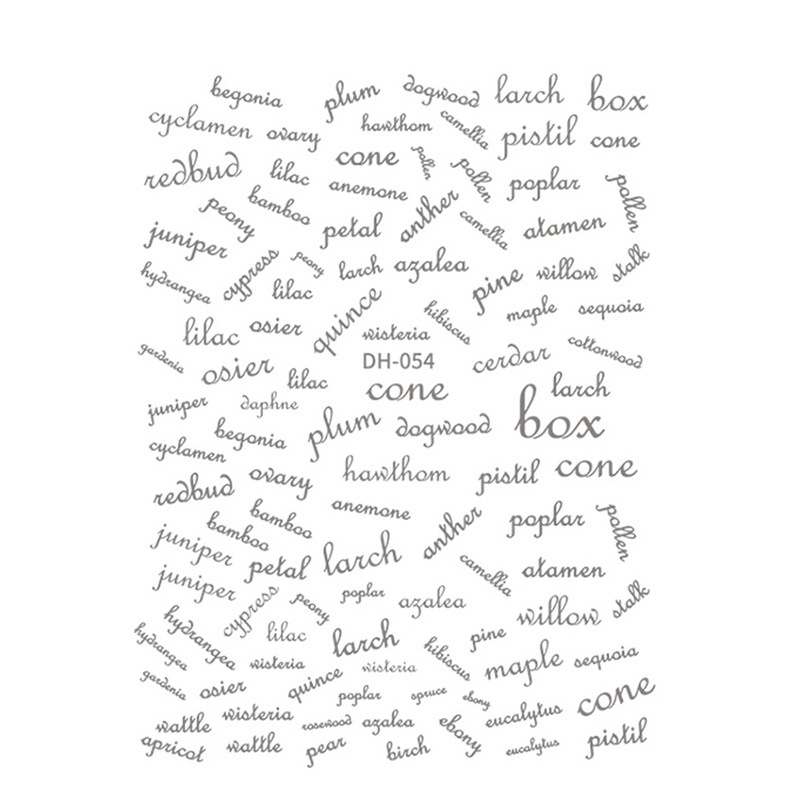 begonia plum dogwood larch box
cyclamen ovary hawthom camellia pistil cone
redbud lilac cone pollen pollen poplar pollen
peony bamboo anemone anther camellia atamen
juniper petal
hydrangea cypress peony larch azalea pine willow stalk
lilac quince hibiscus maple sequoia
lilac osier wisteria
gardenia osier DH-054 cerdar cottonwood
lilac cone larch
juniper daphne plum dogwood box
cyclamen begonia
redbud ovary hawthom pistil cone
bamboo anemone anther poplar pollen
juniper bamboo petal larch camellia atamen
juniper cypress peony poplar azalea willow stalk
hydrangea hydrangea lilac larch hibiscus pine
gardenia wisteria wisteria maple sequoia
osier quince poplar spruce ebony eucalytus cone
wattle wisteria rosewood azalea ebony
apricot wattle pear birch eucalytus pistil